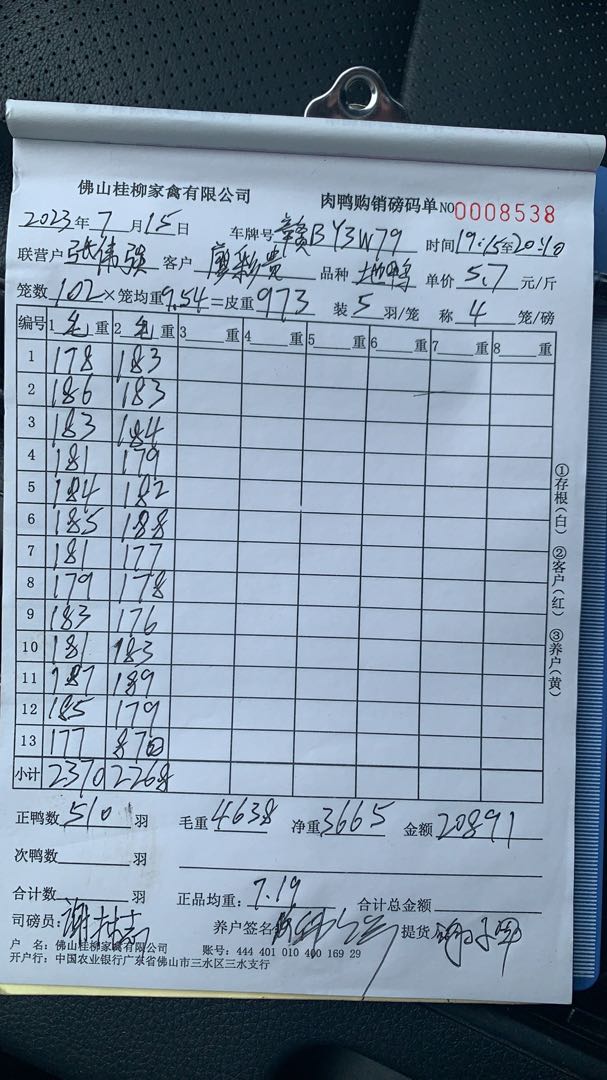 佛山桂柳家禽有限公司 肉鸭购销磅码单 NO 0008538
2023年 7月 15日 车牌号 赣BY3W79 时间 19:15至20:10
联营户 张伟强 客户 廖彩贵 品种 地鸭 单价 5.7 元/斤
笼数 102 ×笼均重 9.54 =皮重 973 装 5 羽/笼 称 4 笼/磅
编号 1 毛 重 2 毛 重 3 重 4 重 5 重 6 重 7 重 8 重
1 178 183
2 186 183
3 183 184
4 181 179
5 184 182
6 185 188
7 181 177
8 179 178
9 183 176
10 181 183
11 187 189
12 185 179
13 177 87
小计 2370 2268
①存根(白) ②客户(红) ③养户(黄)
正鸭数 510 羽 毛重 4638 净重 3665 金额 20891
次鸭数 羽
合计数 羽 正品均重: 7.19 合计总金额
司磅员: 养户签名 提货人
户 名: 佛山桂柳家禽有限公司 账号: 444 401 010 400 169 29
开户行: 中国农业银行广东省佛山市三水区三水支行